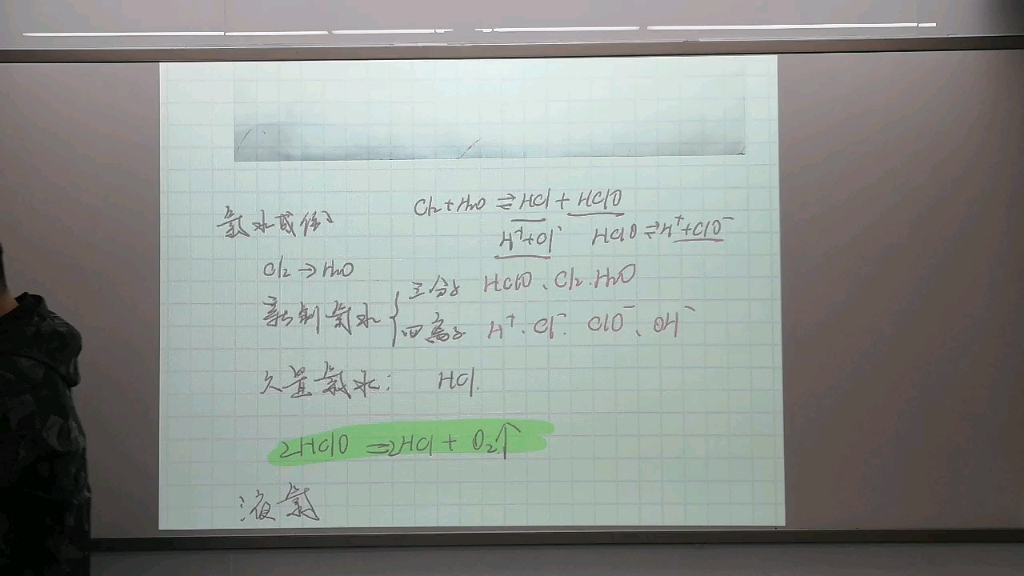 氯水成份
Cl₂+H₂O ⇌ HCl + HClO
H⁺+Cl⁻ HClO ⇌ H⁺+ClO⁻
Cl₂→H₂O
新制氯水 { 三分子 HClO、Cl₂、H₂O
四离子 H⁺、Cl⁻、ClO⁻、OH⁻
久置氯水: HCl.
2HClO = 2HCl + O₂↑
液氯